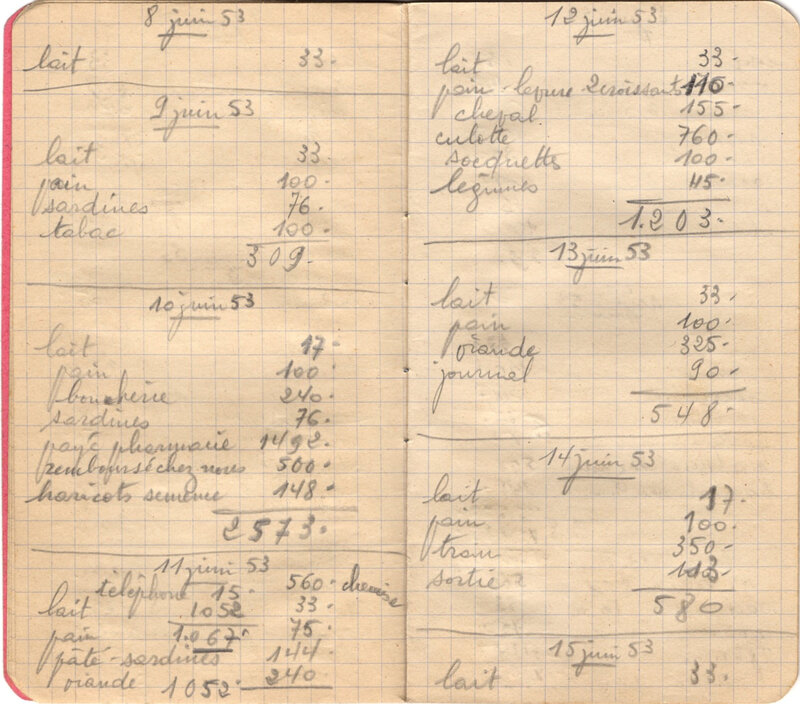 8 juin 53
lait 33.
9 juin 53
lait 33.
pain 100.
sardines 76.
tabac 100.
309.
10 juin 53
lait 17.
pain 100.
boucherie 240.
sardines 76.
payé pharmacie 1492.
remboursé chez nous 500.
haricots semence 148.
2573.
11 juin 53
téléphone 15 560 chemise
lait 1052 33
pain 1.067. 75
pâté-sardines 144
viande 1052. 240
12 juin 53
lait 33.
pain - levure - 2 croissants 110
cheval 155.
culotte 760.
socquettes 100.
légumes 45.
1.203.
13 juin 53
lait 33.
pain 100.
viande 325.
journal 90.
548.
14 juin 53
lait 17.
pain 100.
tram 350.
sortie ? 113.
580
15 juin 53
lait 33.